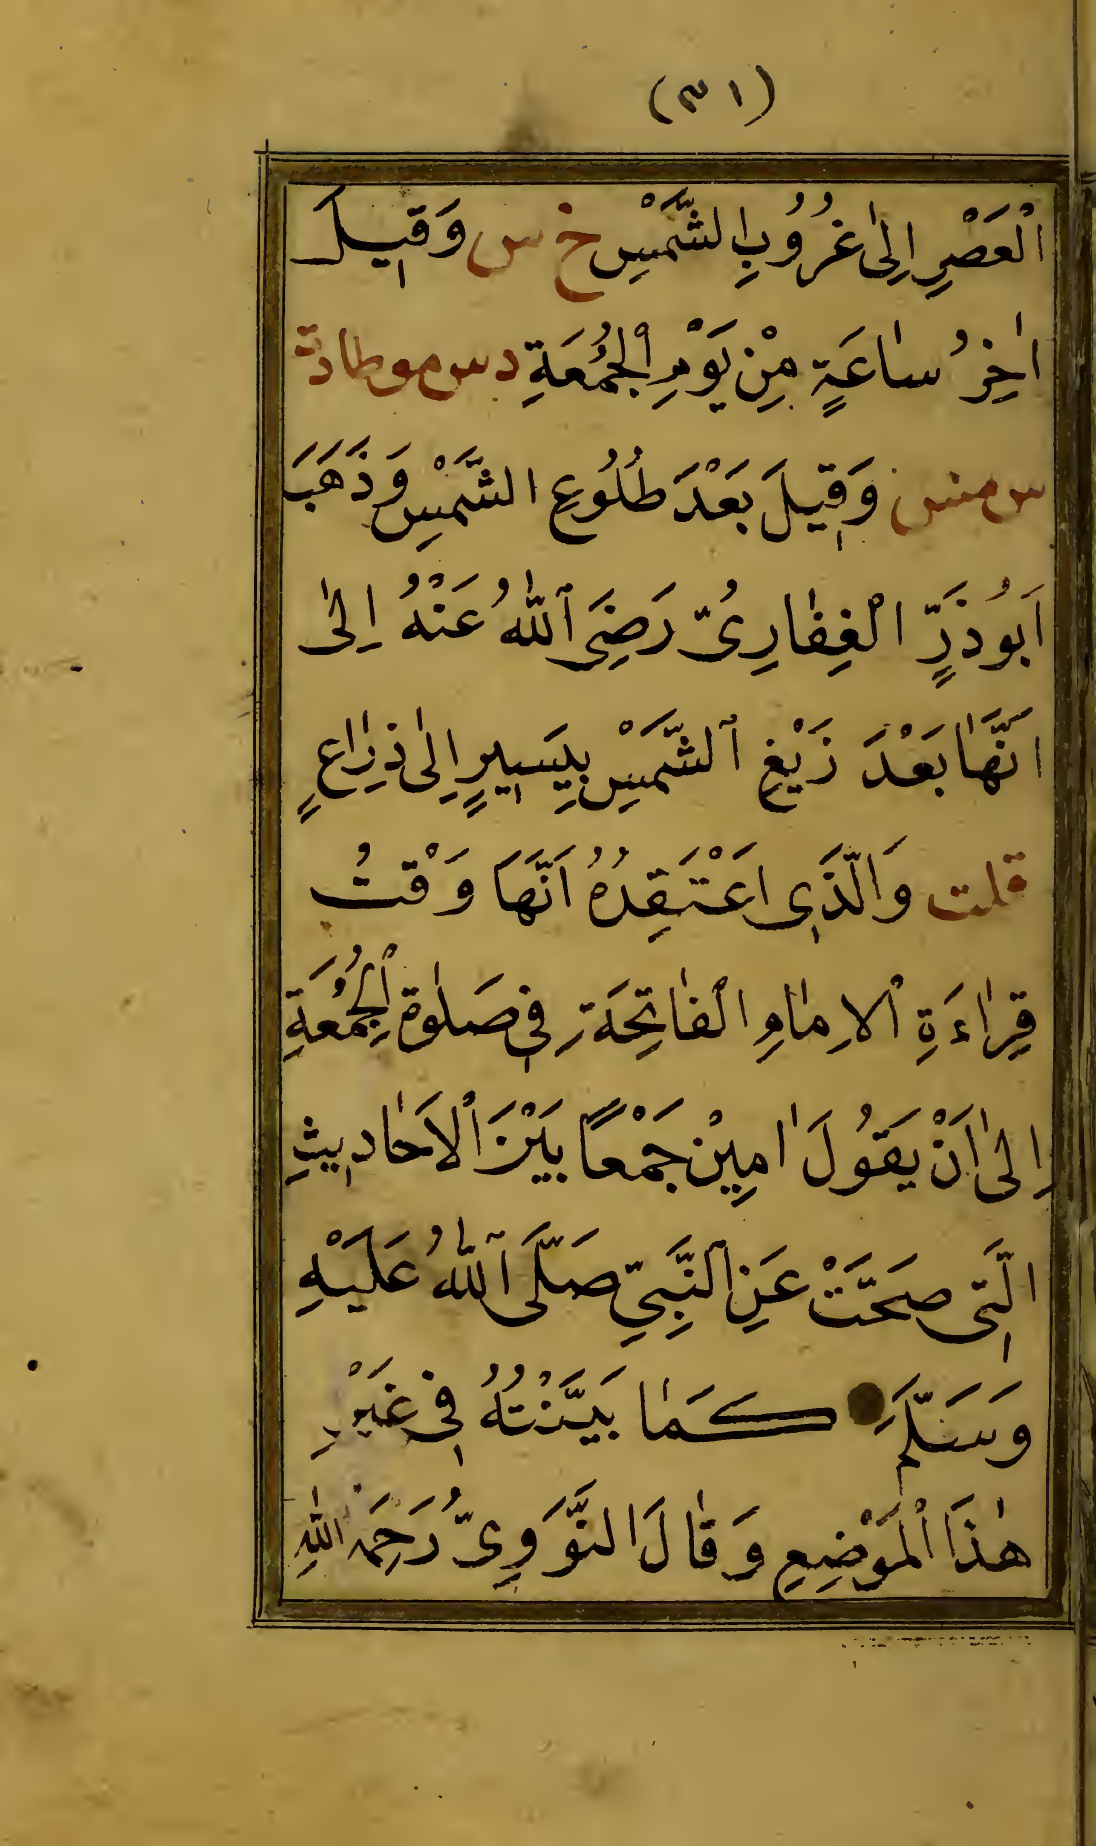 (٣١)
اَلْعَصْرِ اِلٰى غُرُوُبِ الشَّمَسْ خ س وَقٖيلَ
اٰخِرُ سٰاعَةٍ مِنْ يَوْمِ الْجُمُعَةِ د س مو طا د ت
س مس وَقٖيلَ بَعْدَ طُلُوُعِ الشَّمَسْ وَذَهَبَ
اَبُو ذَرٍّ الْغِفٰارِىُّ رَضِىَ اللّٰهُ عَنْهُ اِلٰى
اَنَّهٰا بَعْدَ زَيْغِ الشَّمَسْ بِيَسٖيرٍ اِلٰى ذِرٰاعٍ
قلت وَالَّذٖى اَعْتَقِدُهُ اَنَّهَا وَقْتُ
قِرٰاءَةِ الْاِمٰامِ الْفٰاتِحَةَ فٖى صَلٰوةِ الْجُمُعَةِ
اِلٰى اَنْ يَقُولَ اٰمِيْن جَمْعًا بَيْنَ الْاَحٰادٖيثِ
الَّتٖى صَحَّتْ عَنِ النَّبِىِّ صَلَّى اللّٰهُ عَلَيْهِ
وَسَلَّمَ كَمٰا بَيَّنْتُهُ فٖى غَيْرِ
هٰذَا الْمَوْضِعِ وَقٰالَ النَّوَوِىُّ رَحِمَهُ اللّٰهِ